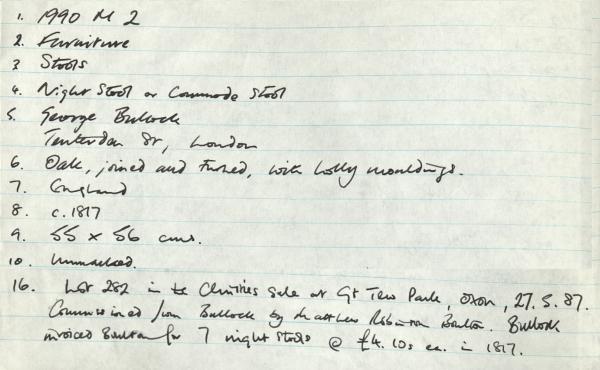 1. 1990 M 2
2. Furniture
3 Stools
4. Night Stool or Commode Stool
5. George Bullock
Tenterden St, London
6. Oak, joined and turned, with holly mouldings.
7. England
8. c.1817
9. 55 x 56 cms.
10. Unmarked.
16. Lot 282 in the Christies Sale at Gt Tew Park, Oxon, 27.5.87.
Commissioned from Bullock by Matthew Robinson Boulton. Bullock
invoiced Boulton for 7 night stools @ £4.10s ea. in 1817.